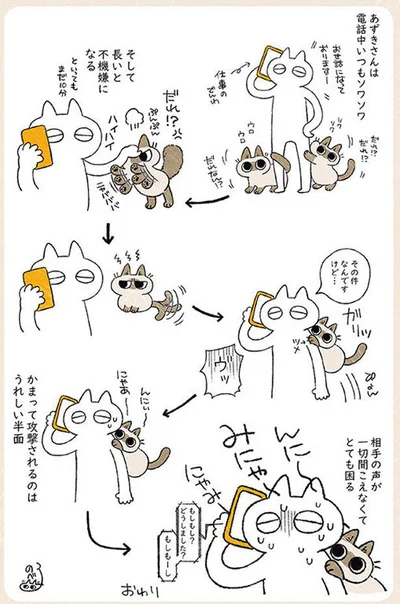 あずきさんは
電話中いつもソワソワ
お世話になって
おりますー
仕事の
でんわ
ソワ
ソワ
だれ!?
だれ!?
ウロ
ウロ
だれなん!?
そして
長いと
不機嫌に
なる
といっても
まだ10分
だれ!?
ぷんぷん
ハイハイ
その件
なんです
けど…
ガリッ
ぴょん
ヴッ
んにぃー
にゃあー
かまって攻撃されるのは
うれしい半面
相手の声が
一切聞こえなくて
とても困る
んにー
みにゃー
にゃあお
もしもし?
どうしました?
もしもーし
おわり